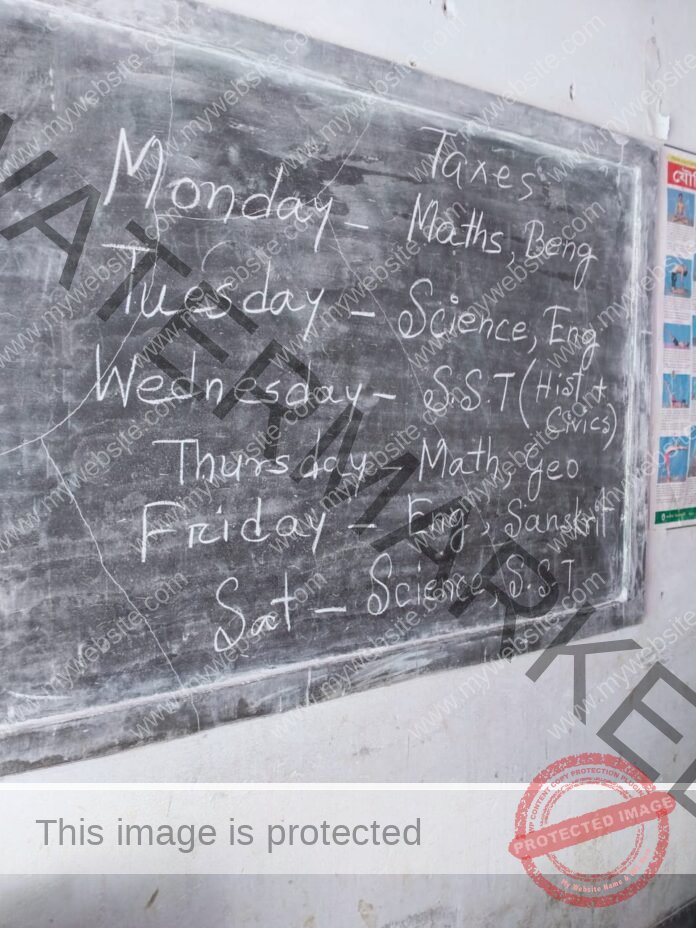 Taxes
Monday - Maths, Beng
Tuesday - Science, Eng
Wednesday - S.S.T (Hist +
Civics)
Thursday - Math, geo
Friday - Eng, Sanskrit
Sat - Science, S.S.T
WATERMARKED
www.mywebsite.com
This image is protected
WP CONTENT COPY PROTECTION PLUGIN
PROTECTED IMAGE
My Website Name &